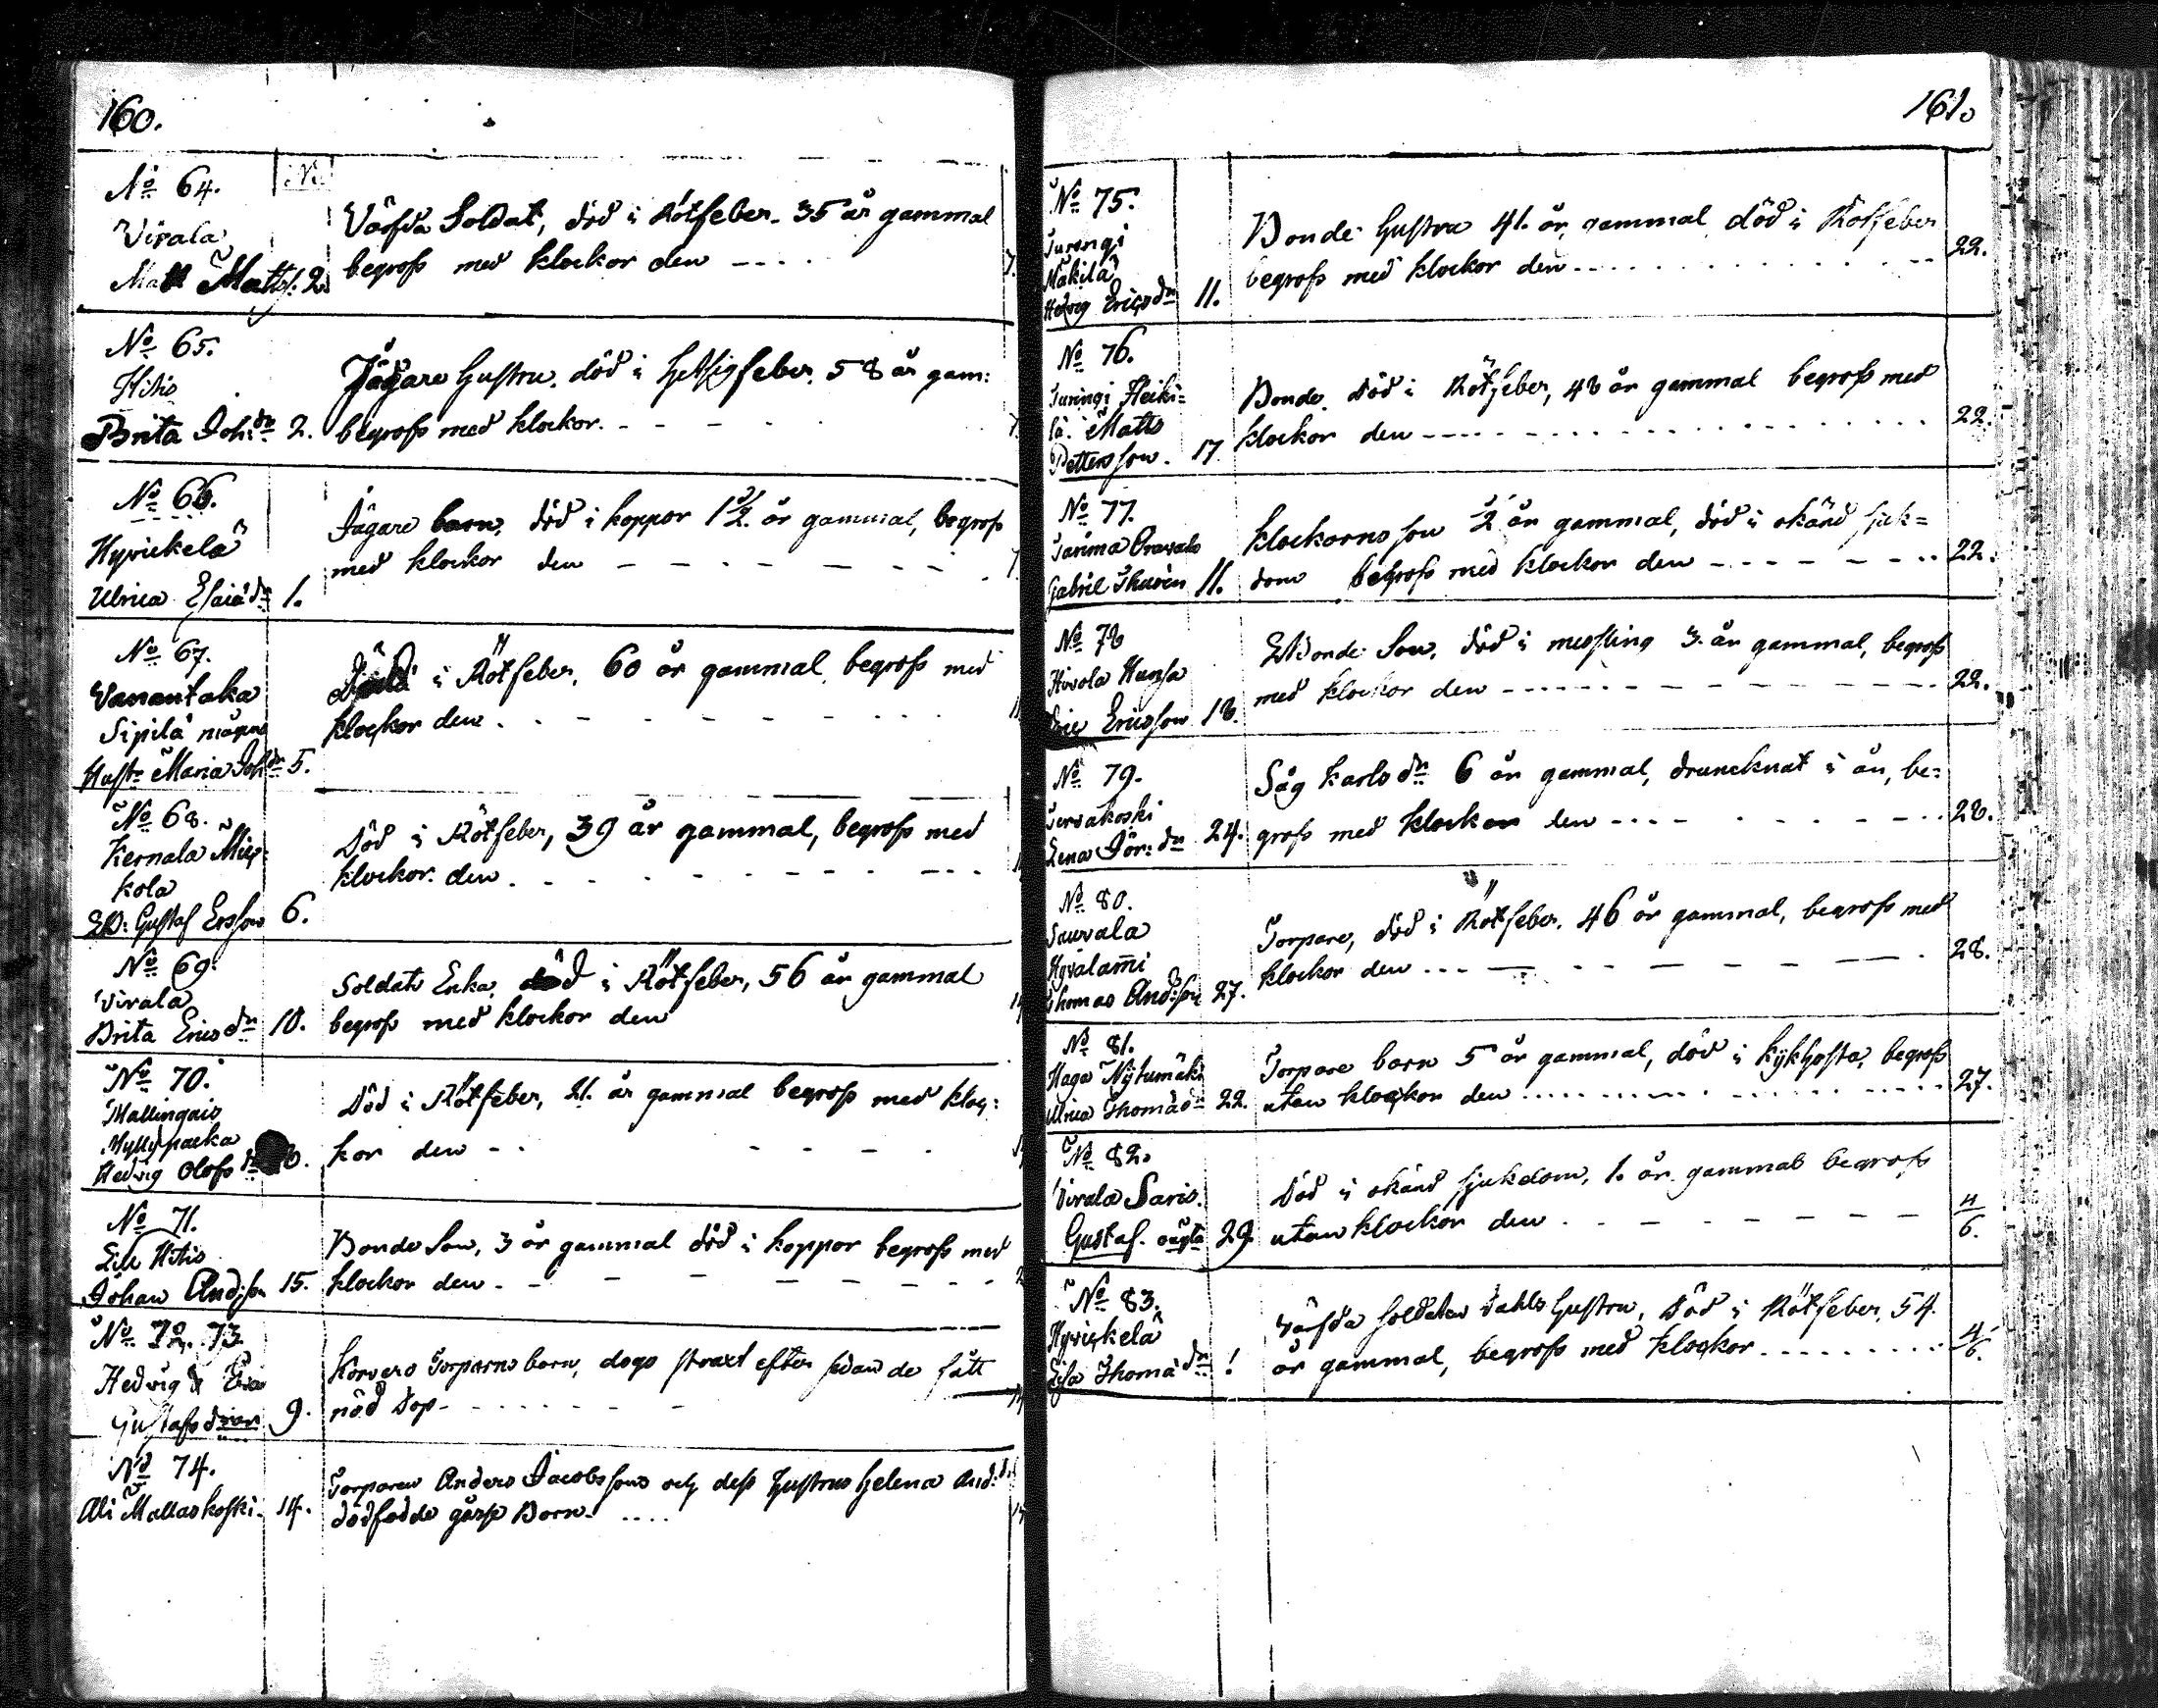 160.
No 64.
Virala
Matt Matts. 2.
Värfda Soldat, död i Rötfeber. 35 år gammal
begrofs med klockor den - - - - 7.
No 65.
Hitis
Brita Joh:dr 2.
Jägare hustru, död i hetsigfeber, 58 år gam:
begrofs med klockor. - - - - 7.
No 66.
Hyvickelä
Ulrica Esaiædr 1.
Jägare barn, död i koppor 1 1/2 år gammal, begrofs
med klockor den - - - - - - - 7
No 67.
Vanantaka
Sipilä
Hustr Maria Johdr 5.
Död i Rötfeber, 60 år gammal, begrofs med
klockor den. - - - - - - - -
No 68.
Kernala Mic-
kola
EB: Gustaf Ersson 6.
Död i Rötfeber, 39 år gammal, begrofs med
klockor den. - - - - - - - -
No 69.
Virala
Brita Ericsdr 10.
Soldats Enka, död i Rötfeber, 56 år gammal
begrofs med klockor den
No 70.
Mallingais
Myllypacka
Hedvig Olofs
Död i Rötfeber, 21. år gammal begrofs med kloc:
kor den - - - - - -
No 71.
Lill Hitis
Johan And:son 15.
Bonde Son, 3 år gammal död i koppor begrofs med
klockor den - - - - - - - -
No 72. 73
Hedvig & Eva
Gustafsdrar 9.
Korvero Torparns barn, dogo straxt efter sedan de fått
nöd Dop - - - - - -
No 74.
Ali Mallaskoski. 14.
Torparen Anders Jacobssons och dess hustrus Helena And:dr
dödfödde gåsse Barn - . . . .
161.
No 75.
Turengi
Mäkilä
Hedvig Ericsdr 11.
Bonde hustru 41. år gammal död i Rötfeber
begrofs med klockor den - - - - - - 22.
No 76.
Turingi Heiki=
lä. Matts
Pettersson. 17
Bonde. död i Rötfeber, 48 år gammal begrofs med
klockor den - - - - - - - - 22.
No 77.
Gabriel 11.
Klockarns son 1/2 år gammal, död i okänd sjuk=
dom begrofs med klockor den - - - - - 22.
No 78
Hivola Hunsa
Eric Ericsson 18.
EBonde Son, död i messling 3. år gammal, begrofs
med klockor den - - - - - - - 22.
No 79.
Tervakoski
Lena Jör:dr 24.
Såg karls dr 6 år gammal, druncknat i ån, be:
grofs med klockor den - - - - - - 28.
No 80.
Sauvala
Hyvälammi
Thomas And:son 27.
Torpare, död i Rötfeber, 46 år gammal, begrofs med
klockor den - - - - - - - 28.
No 81.
Haga Nytumäki
Ulrica Thomædr 22.
Torpare barn 5 år gammal, död i kikhosta, begrofs
utan klockor den . . . . . . . . 27.
No 82.
Virala Saris.
Gustaf. oägta 29
Död i okänd sjukdom, 1. år gammal begrofs
utan klockor den - - - - - - 4/6.
No 83.
Hyvickelä
Lisa Thomædr 1
Värfda soldaten Dahls hustru, Död i Rötfeber, 54.
år gammal, begrofs med klockor. . . . . . 4/6.